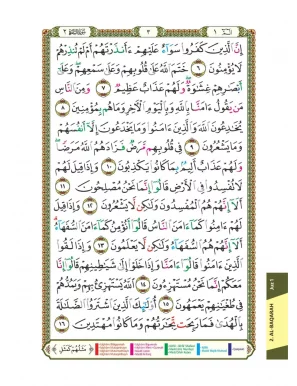 ٣
إِنَّ ٱلَّذِينَ كَفَرُوا۟ سَوَآءٌ عَلَيْهِمْ ءَأَنذَرْتَهُمْ أَمْ لَمْ تُنذِرْهُمْ
لَا يُؤْمِنُونَ ٦ خَتَمَ ٱللَّهُ عَلَىٰ قُلُوبِهِمْ وَعَلَىٰ سَمْعِهِمْ وَعَلَىٰٓ
أَبْصَٰرِهِمْ غِشَٰوَةٌ وَلَهُمْ عَذَابٌ عَظِيمٌ ٧ وَمِنَ ٱلنَّاسِ
مَن يَقُولُ ءَامَنَّا بِٱللَّهِ وَبِٱلْيَوْمِ ٱلْءَاخِرِ وَمَا هُم بِمُؤْمِنِينَ ٨
يُخَٰدِعُونَ ٱللَّهَ وَٱلَّذِينَ ءَامَنُوا۟ وَمَا يَخْدَعُونَ إِلَّآ أَنفُسَهُمْ
وَمَا يَشْعُرُونَ ٩ فِى قُلُوبِهِم مَّرَضٌ فَزَادَهُمُ ٱللَّهُ مَرَضًا
وَلَهُمْ عَذَابٌ أَلِيمٌۢ بِمَا كَانُوا۟ يَكْذِبُونَ ١٠ وَإِذَا قِيلَ لَهُمْ
لَا تُفْسِدُوا۟ فِى ٱلْأَرْضِ قَالُوٓا۟ إِنَّمَا نَحْنُ مُصْلِحُونَ ١١
أَلَآ إِنَّهُمْ هُمُ ٱلْمُفْسِدُونَ وَلَٰكِن لَّا يَشْعُرُونَ ١٢ وَإِذَا قِيلَ
لَهُمْ ءَامِنُوا۟ كَمَآ ءَامَنَ ٱلنَّاسُ قَالُوٓا۟ أَنُؤْمِنُ كَمَآ ءَامَنَ ٱلسُّفَهَآءُ
أَلَآ إِنَّهُمْ هُمُ ٱلسُّفَهَآءُ وَلَٰكِن لَّا يَعْلَمُونَ ١٣ وَإِذَا لَقُوا۟
ٱلَّذِينَ ءَامَنُوا۟ قَالُوٓا۟ ءَامَنَّا وَإِذَا خَلَوْا۟ إِلَىٰ شَيَٰطِينِهِمْ قَالُوٓا۟ إِنَّا
مَعَكُمْ إِنَّمَا نَحْنُ مُسْتَهْزِءُونَ ١٤ ٱللَّهُ يَسْتَهْزِئُ بِهِمْ وَيَمُدُّهُمْ
فِى طُغْيَٰنِهِمْ يَعْمَهُونَ ١٥ أُو۟لَٰٓئِكَ ٱلَّذِينَ ٱشْتَرَوُا۟ ٱلضَّلَٰلَةَ
بِٱلْهُدَىٰ فَمَا رَبِحَت تِّجَٰرَتُهُمْ وَمَا كَانُوا۟ مُهْتَدِينَ ١٦
مَثَلُهُمْ كَمَثَلِ
Juz 1
2. AL-BAQARAH